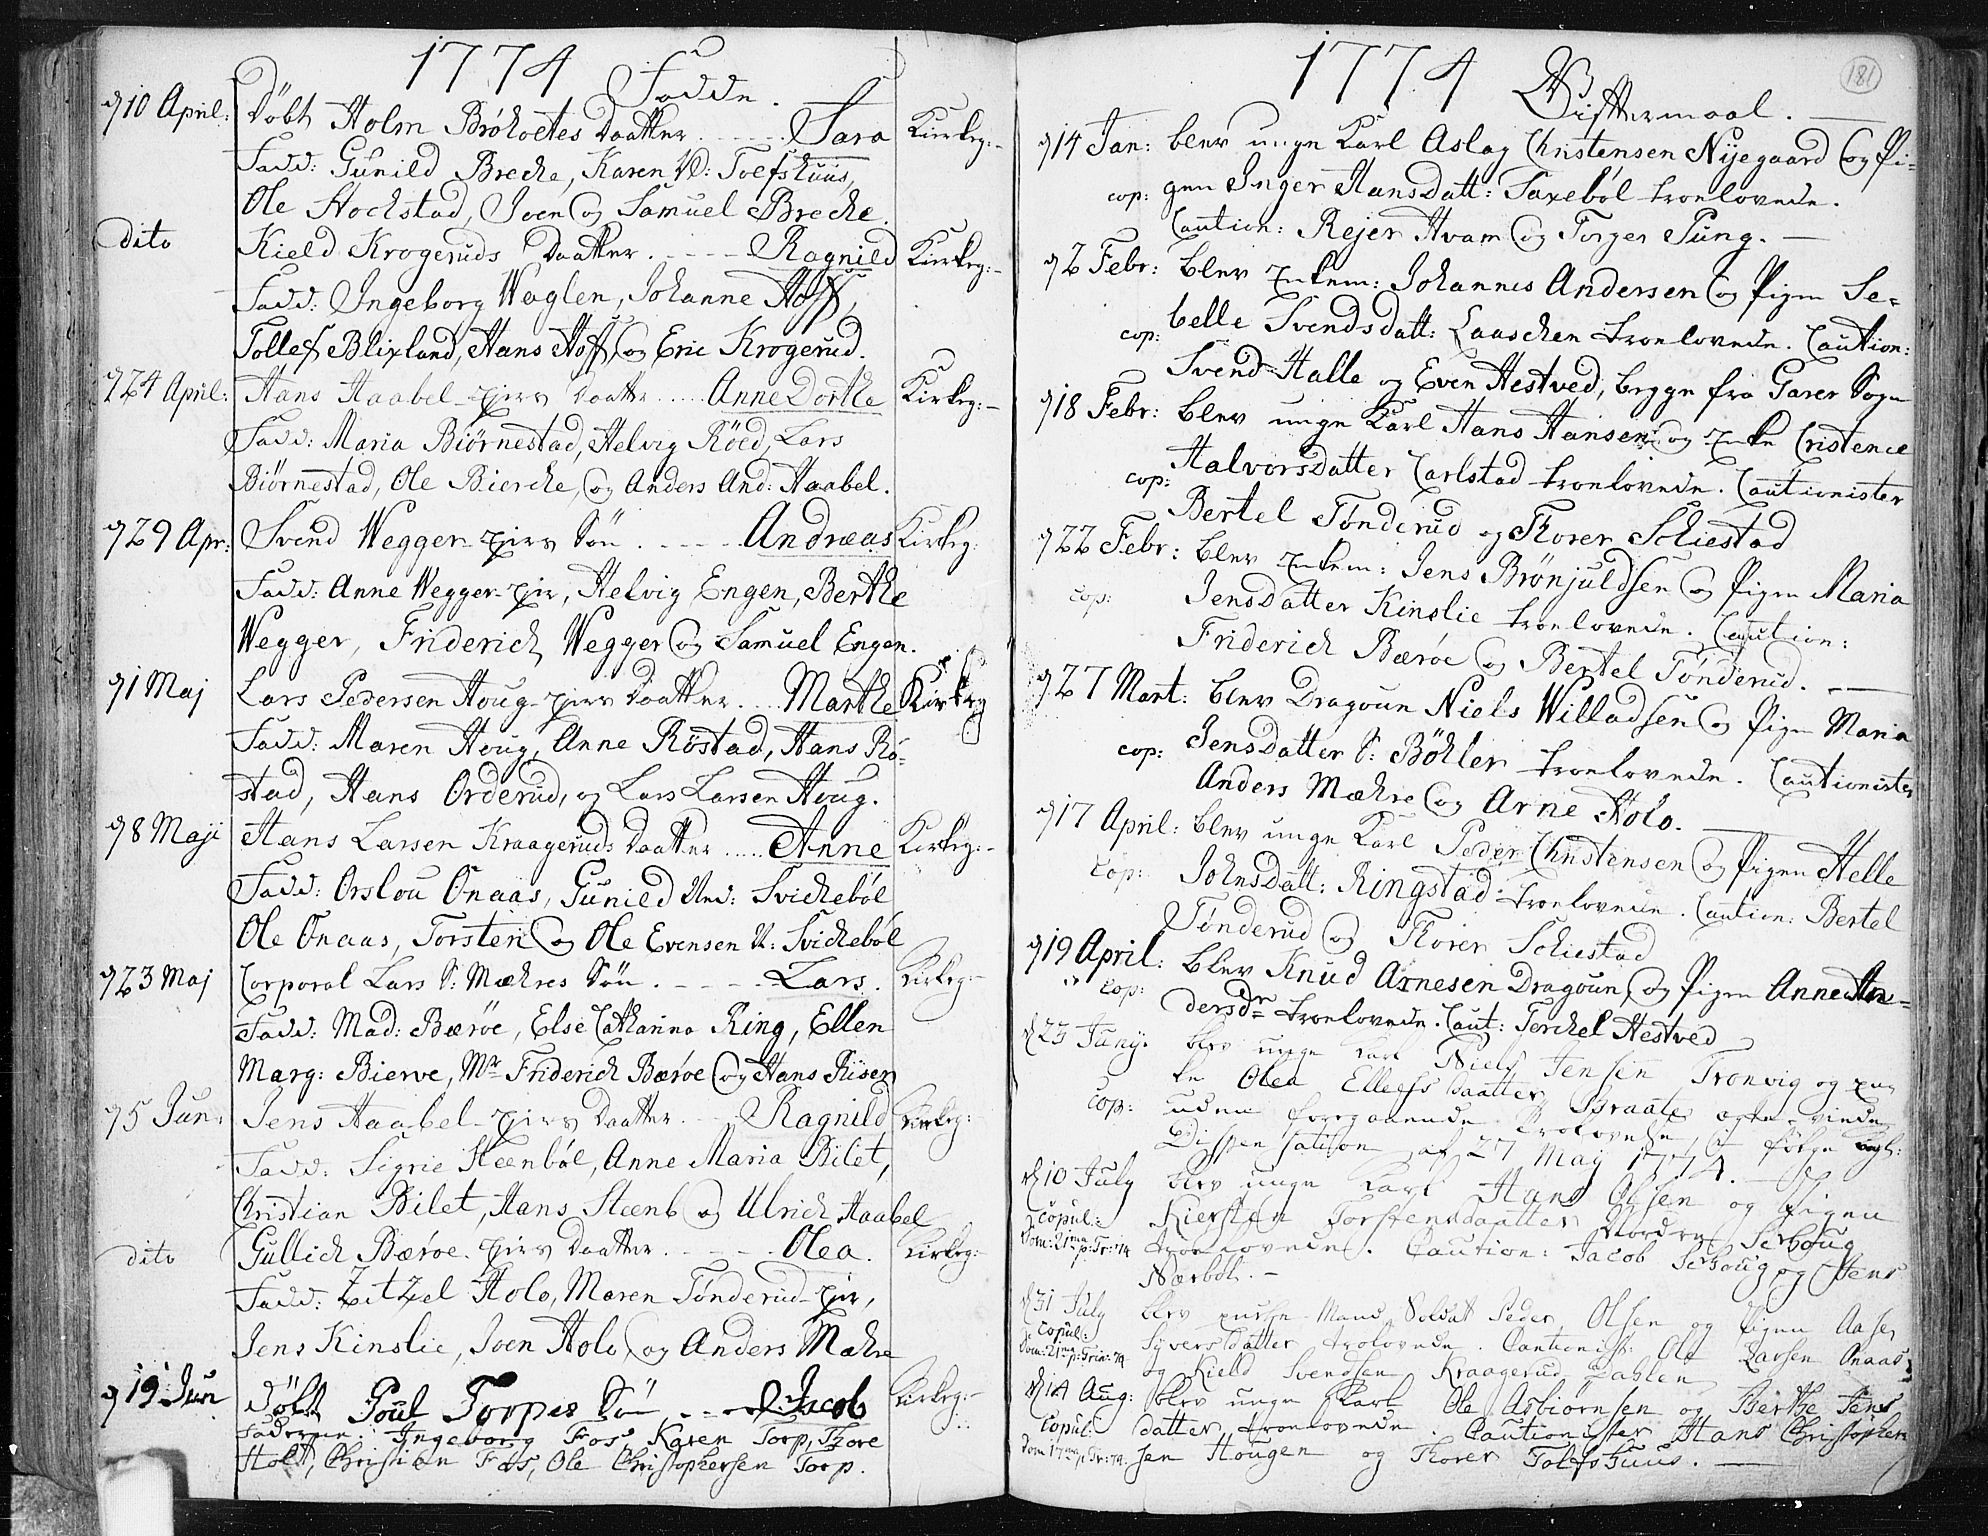 1774
Fadde.
d 10 April: Døbt Holm Bröholtes Daatter ..... Sara Kirkeg:
Fadd: Gunild Breche, Karen N: Toefshuus,
Ole Hochstad, Joen og Samuel Breche.
dito Kield Krogeruds Daatter ..... Ragnild Kirkeg:
Fadd: Ingeborg Waglen, Johanne Hoff,
Tollef Blixland, Hans Hoff, og Eric Krogerud.
d 24 April: Hans Haabel-ejers Daatter ..... Anne Dorthe Kirkeg:
Fadd: Maria Biörnestad, Helvig Röed, Lars
Biörnestad, Ole Bierche, og Anders And: Haabel.
d 29 Apr: Svend Wegger-ejers Sön ..... Andreas Kirkeg:
Fadd: Anne Wegger-eje, Helvig Engen, Berthe
Wegger, Friderich Wegger og Samuel Engen.
d 1 Maj Lars Pedersen Houg-ejers Daatter .... Marthe Kirkeg
Fadd: Maren Houg, Anne Röstad, Hans Rö-
stad, Hans Orderud, og Lars Larsen Houg.
d 8 Maji Hans Larsen Kraageruds Daatter ..... Anne Kirkeg:
Fadd: Orslou Onaas, Gunild Svichebøl
Ole Onaas, Torsten og Ole Evensen N: Svichebøl
d 23 Maj Corporal Lars S: Mæhres Sön ..... Lars. Kirkeg:
Fadd: Mad: Bæröe, Else Catharina Ring, Ellen
Marg: Bierve, Mr Friderich Bæröe og Hans Riisen
d 5 Jun: Jens Haabel-ejers Daatter ... Ragnild Kirkeg:
Fadd: Sigrie Steenbøl, Anne Maria Bilet,
Christian Bilet, Hans Steenb og Ulrich Haabel
dito Gullich Bæröe-ejers Daatter ..... Olea. Kirkeg:
Fadd: Zitzel Holo, Maren Tönderud-eje,
Jens Kinslie, Joen Holo, og Anders Mæhre
d 19 Jun Døbt Poul Torpes Sön .... Jacob Kirkeg:
Fadderne: Ingeborg Fos, Karen Torp, Thore
Holt, Christen Fos, Ole Christophersen Torp.
181
1774
Giftermaal.
d 14 Jan: blev unge Karl Aslag Christensen Nyegaard og Pi-
cop: gen Inger Hansdatt: Saxebøl troelovede.
Caution: Rejer Hvam og Torger Pung.
d 2 Febr: blev Enkem: Johannes Andersen og Pigen Se-
cop: belle Svendsdatt: Laaschen troelovede. Caution:
Svend Halle og Even Hestved, begge fra Garer Sogn
d 18 Febr: blev unge Karl Hans Hansen og Enke Cristence
cop: Halvorsdatter Carlstad troelovede. Cautionister
Bertel Tønderud og Thorer Schiestad
d 22 Febr: blev Enkem: Jens Brönjuldsen og Pigen Maria
cop: Jensdatter Kinslie troelovede. Caution:
Friderich Bæröe og Bertel Tønderud.
d 27 Mart: blev Dragoun Niels Willadsen og Pigen Maria
cop: Jensdatter S: Böhler troelovede. Cautionister
Anders Mæhre og Arne Holo.
d 17 April: blev unge Karl Peder Christensen og Pigen Helle
cop: Johnsdatt: Ringstad troelovede. Caution: Bertel
Tønderud og Thorer Schiestad
d 19 April: blev Knud Arnesen Dragoun, og Pigen Anne An-
cop: dersdr troelovede. Caut: Terchel Hestved
d 25 Juny: blev unge Karl Niels Jensen Tronvig og En-
ke Olea Ellefs Daatter Braate
cop: uden foregaaende Trolovede, i følge
Dispensation af 27 Maj 1774.
d 10 July blev unge Karl Hans Olsen og Pigen
copul: Kiersten Torstensdaatter Nordre Serboug
Dom: 21ma p: Tr: 74 troelovede. Caution: Jacob Serboug og Jens
Nærbøl.
d 31 July blev Mand Soldat Peder Olsen og Pigen Aase
copul: Syversdatter trolovede. Cautionist: Ole Larsen Onaas
Dom: 21ma p: Trin: 74 og Kield Svendsen Kraagerud Dahlen
d 14 Aug: blev unge Karl Ole Asbiörnsen og Berthe Jens
copul: datter troelovede. Cautionister Hans Christopher
Dom 17ma p: Tr: 74 sen Hougen og Thorer Tolfshuus.